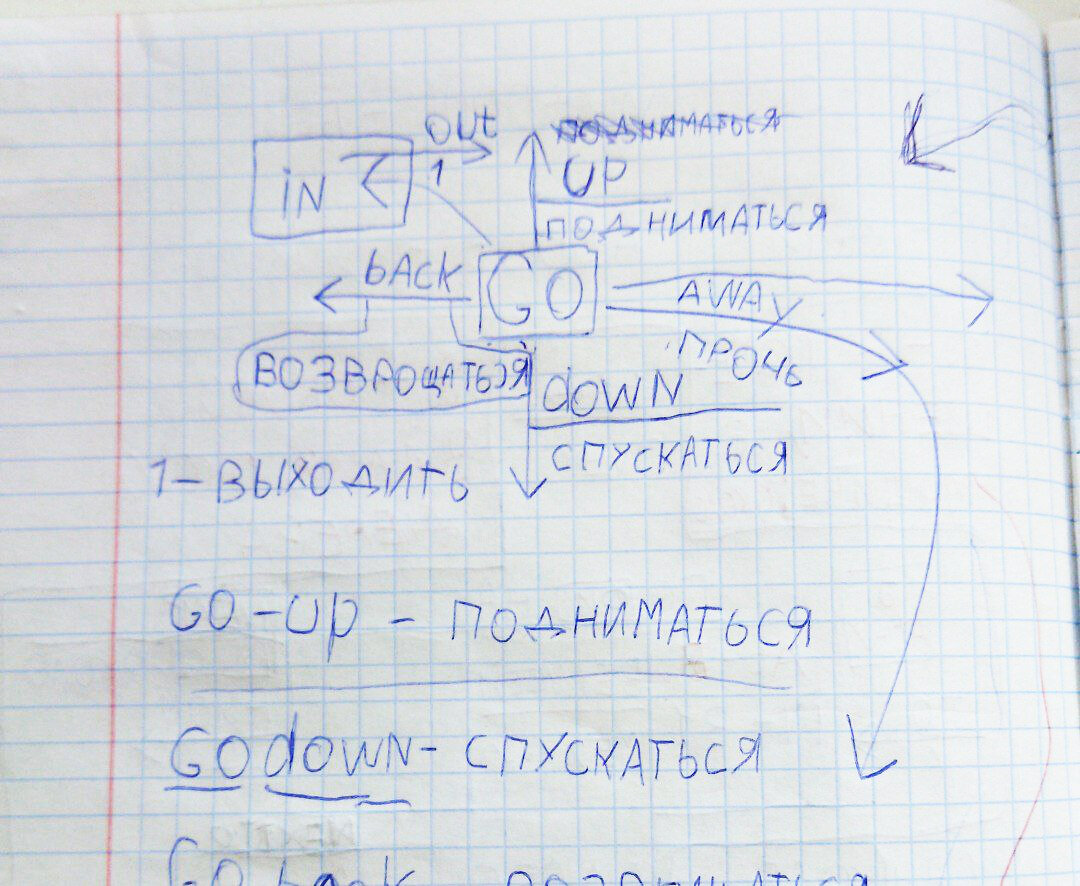 out
ПОДНИМАТЬСЯ
iN
1
UP
ПОДНИМАТЬСЯ
bACK
GO
AWAY
ПРОЧЬ
ВОЗВРОЩАТЬСЯ
doWN
СПУСКАТЬСЯ
1-ВЫХОДИТЬ
GO-UP - ПОДНИМАТЬСЯ
GO doWN- СПУСКАТЬСЯ
GO back